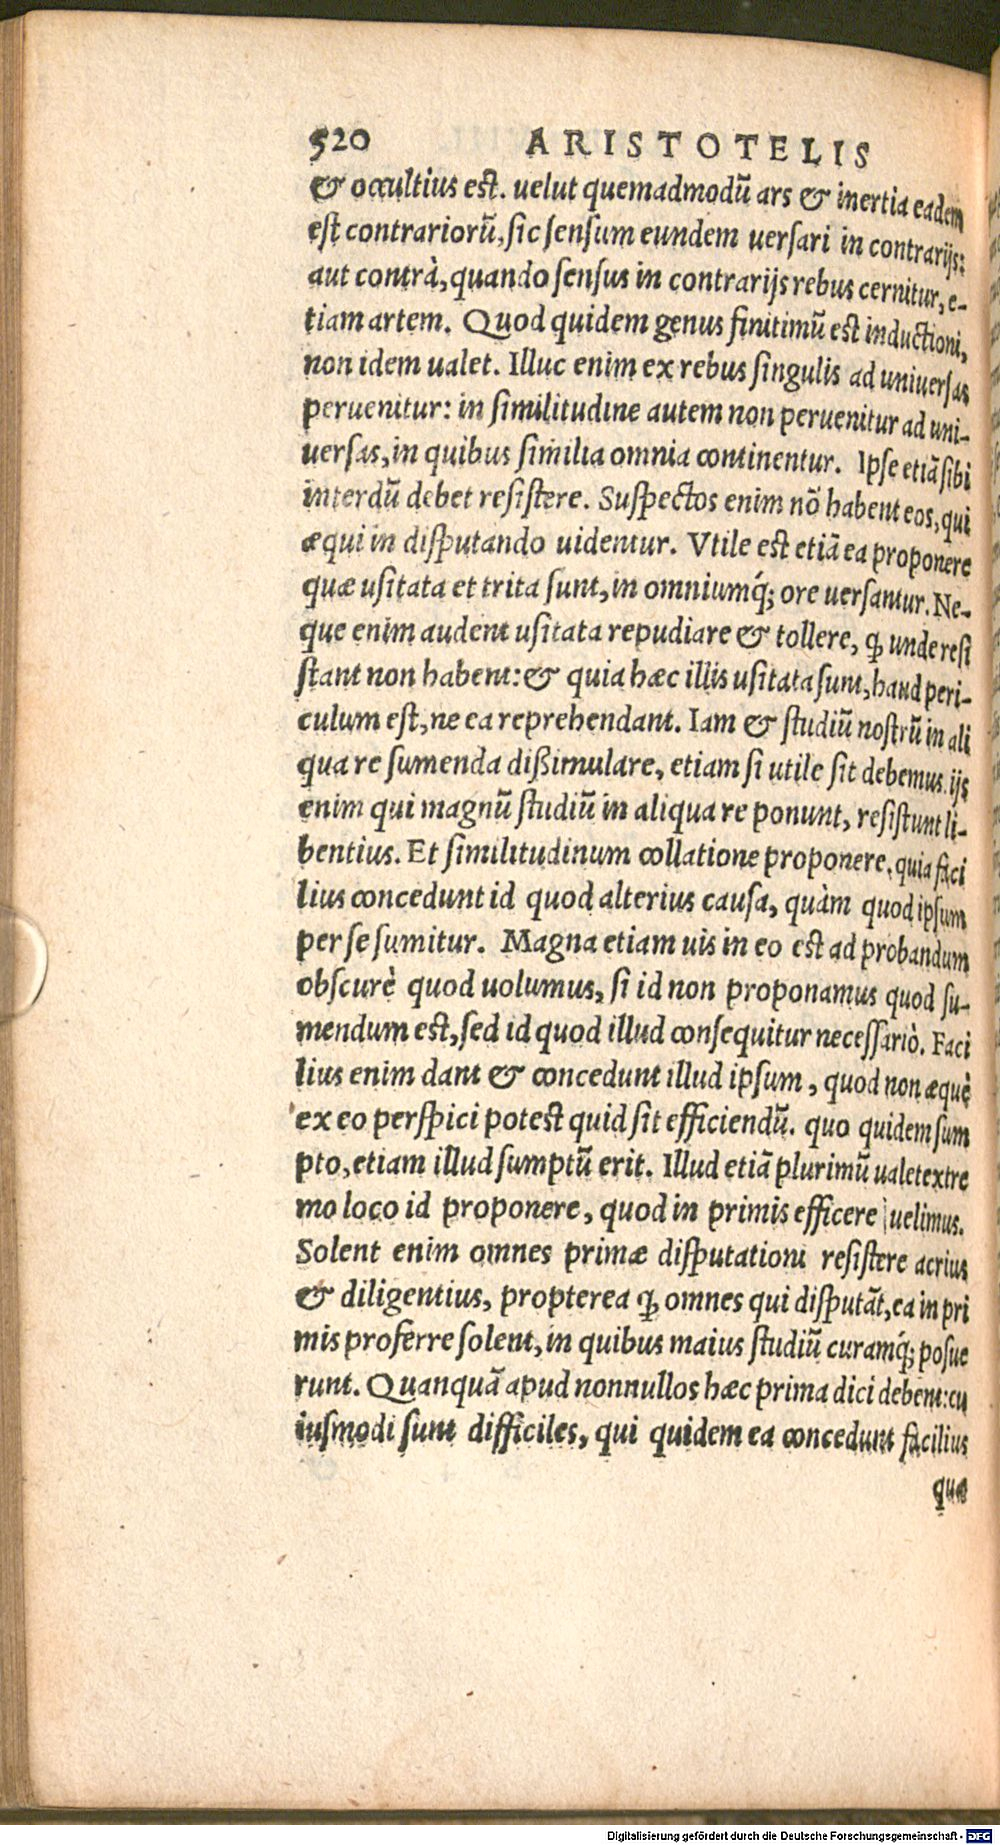 520 ARISTOTELIS
& occultius est. uelut quemadmodū ars & inertia eadem
est contrariorū, sic sensum eundem uersari in contrarijs:
aut contrà, quando sensus in contrarijs rebus cernitur, e-
tiam artem. Quod quidem genus finitimū est inductioni,
non idem ualet. Illuc enim ex rebus singulis ad uniuersas
peruenitur: in similitudine autem non peruenitur ad uni-
uersas, in quibus similia omnia continentur. Ipse etiā sibi
interdū debet resistere. Suspectos enim nō habent eos, qui
æqui in disputando uidentur. Vtile est etiā ea proponere
quæ usitata et trita sunt, in omniumq́; ore uersantur. Ne-
que enim audent usitata repudiare & tollere, ꝙ unde resi
stant non habent: & quia hæc illis usitata sunt, haud peri-
culum est, ne ea reprehendant. Iam & studiū nostrū in ali
qua re sumenda dißimulare, etiam si utile sit debemus. ijs
enim qui magnū studiū in aliqua re ponunt, resistunt li-
bentius. Et similitudinum collatione proponere, quia faci
lius concedunt id quod alterius causa, quàm quod ipsum
per se sumitur. Magna etiam uis in eo est ad probandum
obscurè quod uolumus, si id non proponamus quod su-
mendum est, sed id quod illud consequitur necessariò. Faci
lius enim dant & concedunt illud ipsum, quod non æquè
ex eo perspici potest quid sit efficiendū. quo quidem sum
pto, etiam illud sumptū erit. Illud etiā plurimū ualet extre
mo loco id proponere, quod in primis efficere uelimus.
Solent enim omnes primæ disputationi resistere acrius
& diligentius, propterea ꝙ omnes qui disputāt, ea in pri
mis proferre solent, in quibus maius studiū curamq́; posue
runt. Quanquā apud nonnullos hæc prima dici debent: cu
iusmodi sunt difficiles, qui quidem ea concedunt facilius
quæ
Digitalisierung gefördert durch die Deutsche Forschungsgemeinschaft - DFG